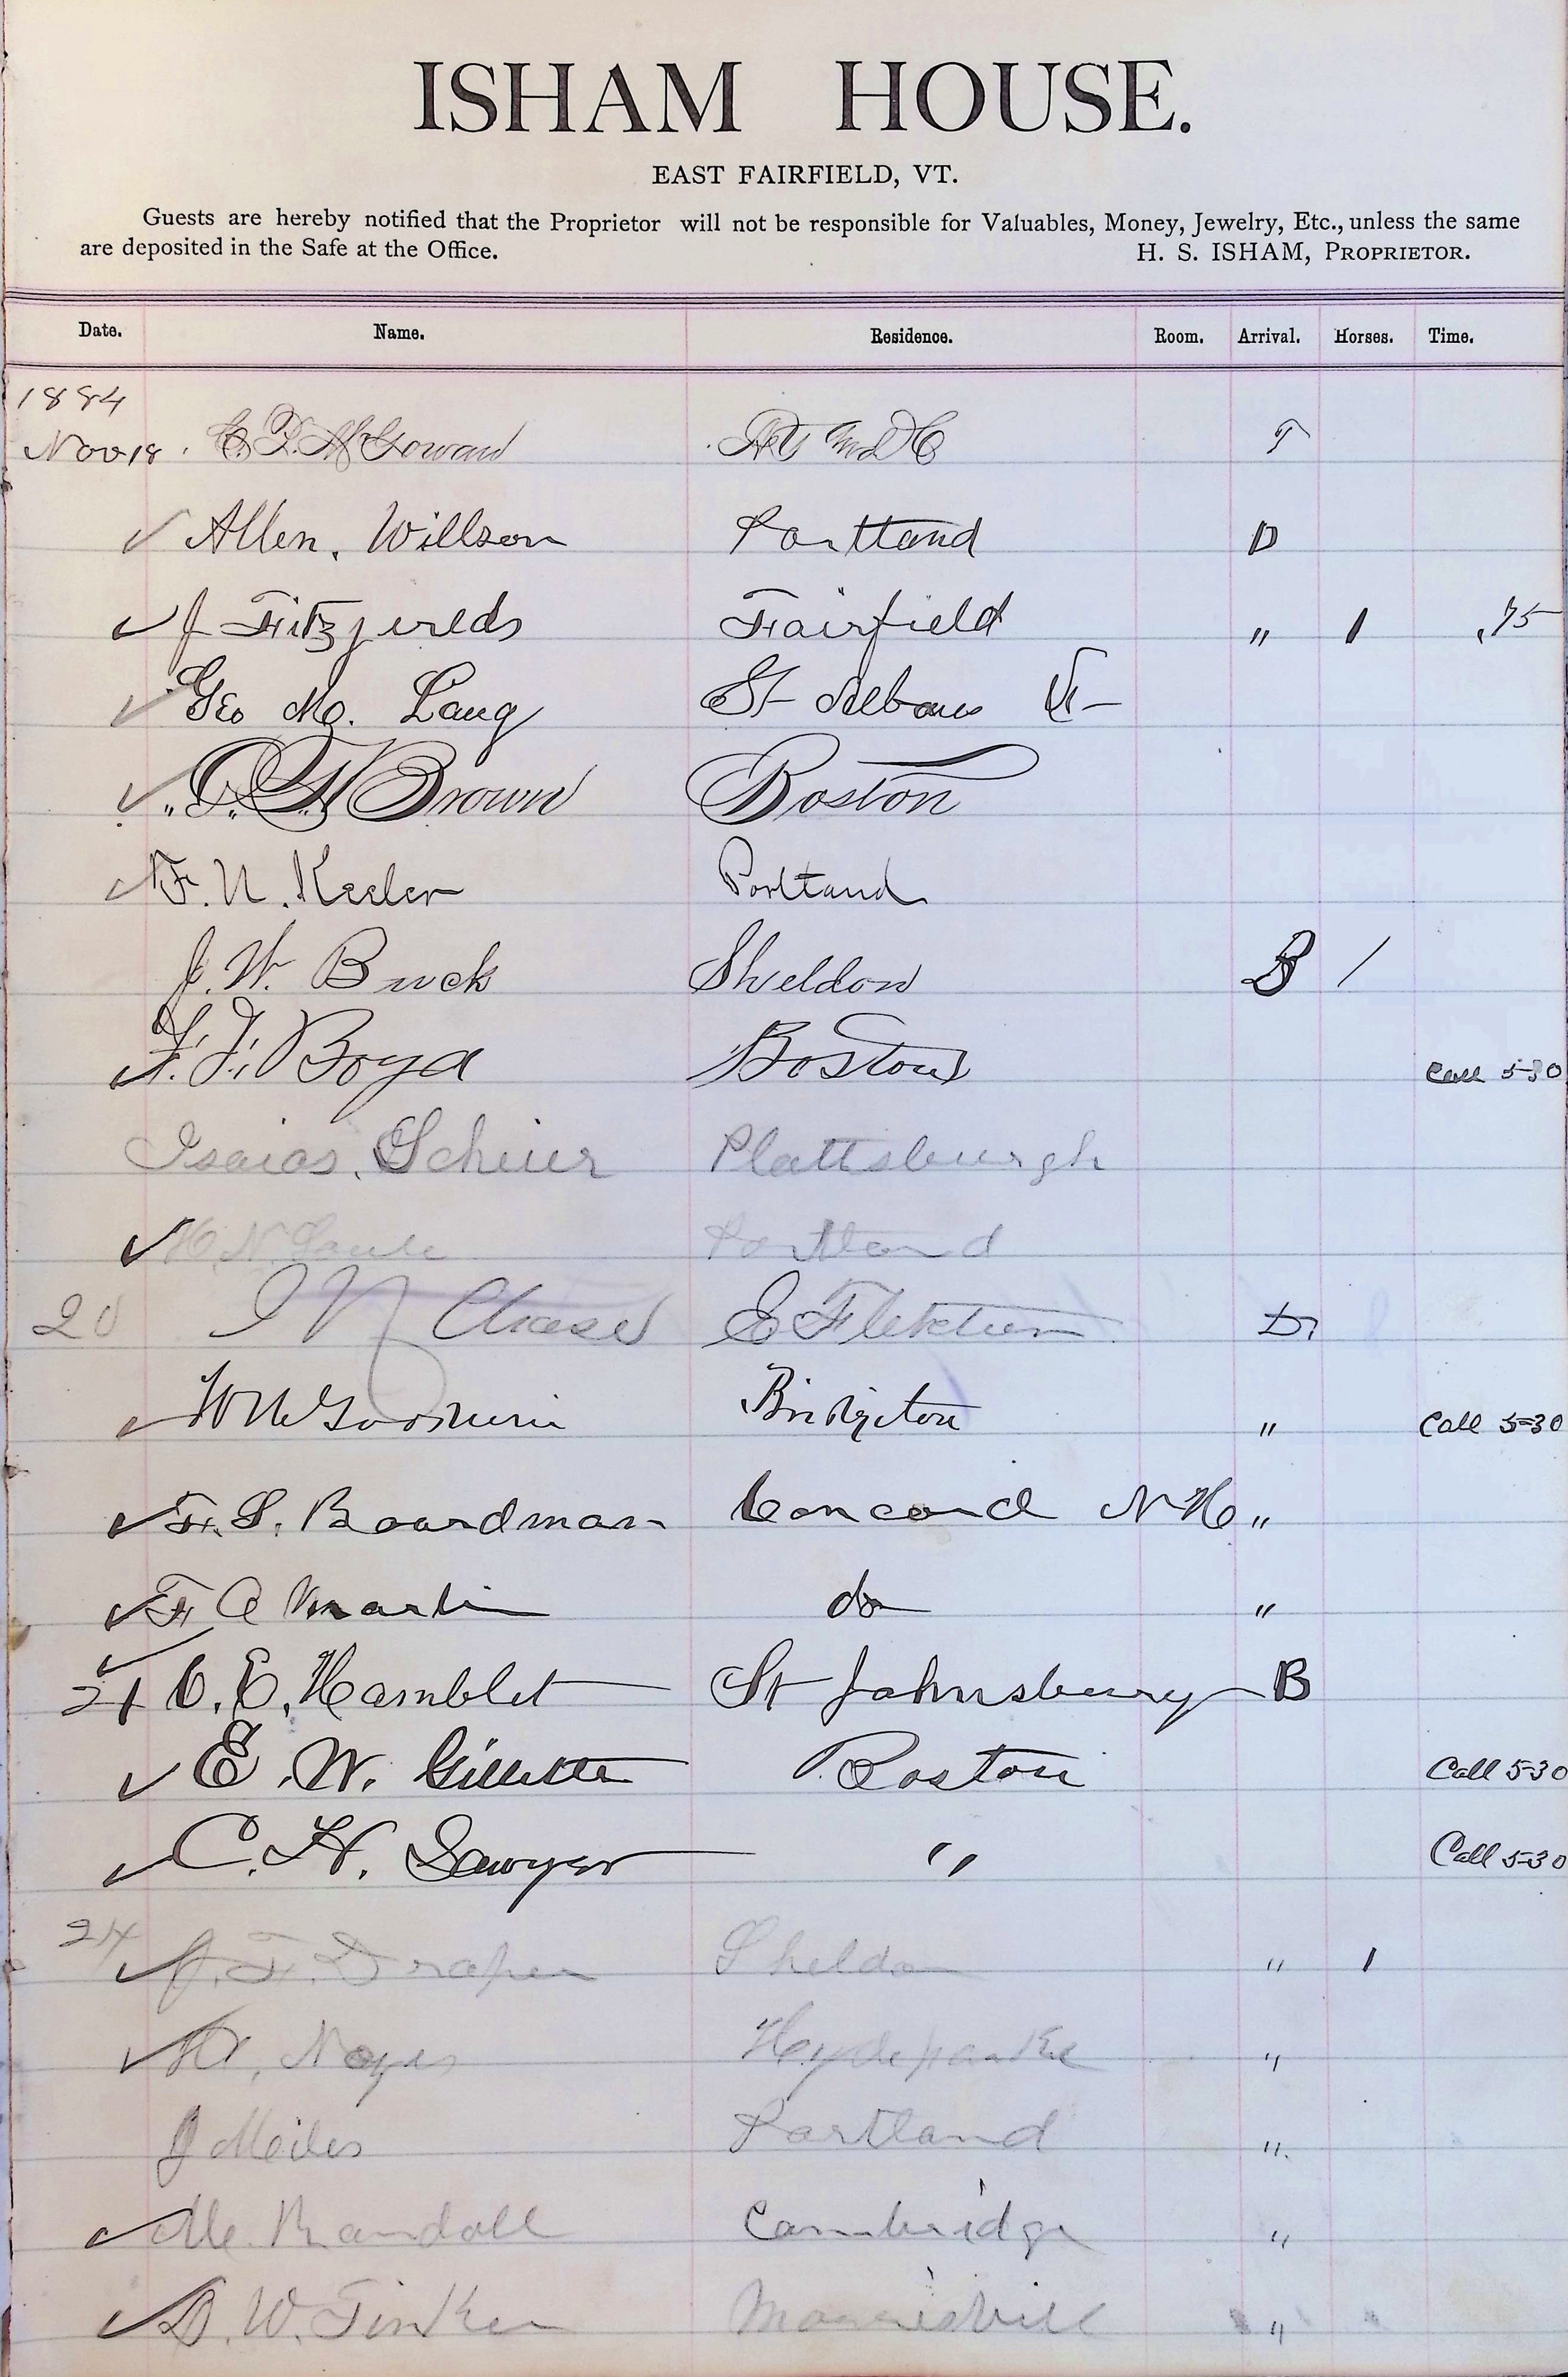 ISHAM HOUSE.
EAST FAIRFIELD, VT.
Guests are hereby notified that the Proprietor will not be responsible for Valuables, Money, Jewelry, Etc., unless the same
are deposited in the Safe at the Office. H. S. ISHAM, PROPRIETOR.
Date. Name. Residence. Room. Arrival. Horses. Time.
1884
Nov 18 McGowan T
Allen. Willson Portland D
J Fitzjerelds Fairfield " 1 .75
Geo M. Lang St Albans Vt
Brown Boston
F. N. Keeler Portland
J. W. Buck Sheldon B /
F. F. Boyd Boston Call 5-30
Isaias. Scheier Plattsburgh
H N Portland
20 I N Chase E Fletcher D
Goodwin Bridgton " Call 5-30
F. S. Boardman Concord N H "
F A Martin do "
21 C. E. Hamblet St Johnsbury B
E. W. Gillette Boston Call 5-30
C. H. Sawyer " Call 5-30
24 J. F. Draper Sheldon " 1
Noyes Hydeparke "
J Meiles Portland "
Mc. Randall Cambridge "
D. W. Tinker Morrisvill "